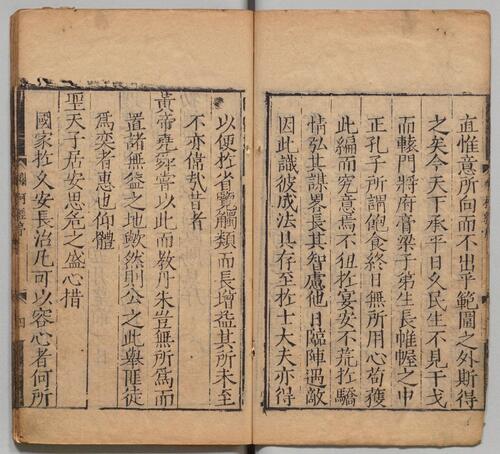 宜惟意所向而不出乎範圍之外斯得
之矣今天下承平日久民生不見干戈
而轅門將府膏粱子弟生長帷幄之中
正孔子所謂飽食終日無所用心苟獲
此編而究意焉不狃於宴安不荒於驕
情弘其謀畧長其智慮他日臨陣遇敵
因此識彼成法具存至於士大夫亦得
以便於省覽觸類而長增益其所未至
不亦偉哉昔者
黃帝堯舜嘗以此而敎丹朱豈無所爲而
置諸無益之地歟然則公之此舉匪徒
爲奕者惠也仰體
聖天子居安思危之盛心措
國家於久安長治凡可以容心者何所
爛柯經序 四